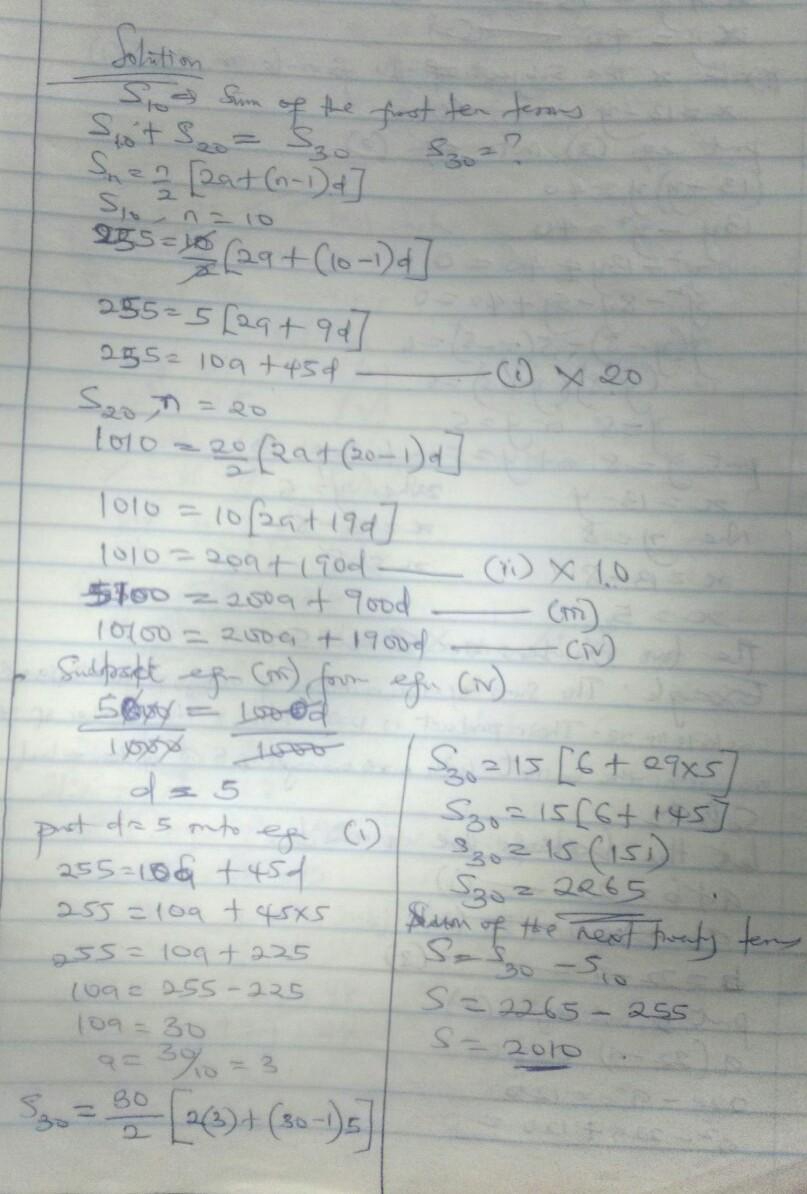 Solution
S10 ⇒ Sum of the first ten terms
S10 + S20 = S30    S30 = ?
Sn = n/2 [2a+(n-1)d]
S10, n = 10
255 = 10/2 [2a+(10-1)d]
255 = 5[2a+9d]
255 = 10a +45d ——— (i) × 20
S20, n = 20
1010 = 20/2 [2a+(20-1)d]
1010 = 10[2a+19d]
1010 = 20a+190d ——— (ii) × 10
5100 = 200a + 900d ——— (iii)
10100 = 200a + 1900d ——— (iv)
Subtract eqn (iii) from eqn (iv)
5000/1000 = 1000d/1000
d = 5
put d=5 into eqn (i)
255=10a +45d
255 = 10a + 45×5
255 = 10a + 225
10a = 255-225
10a = 30
a = 30/10 = 3
S30 = 30/2 [2(3)+(30-1)5]
S30 = 15 [6+29×5]
S30 = 15[6+145]
S30 = 15(151)
S30 = 2265.
Sum of the next twenty terms
S = S30 - S10
S = 2265 - 255
S = 2010.